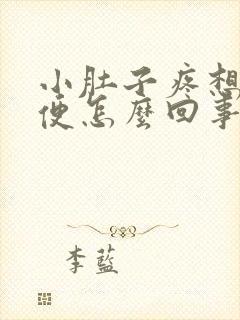 小肚子疼想
便怎麼回事
李藍